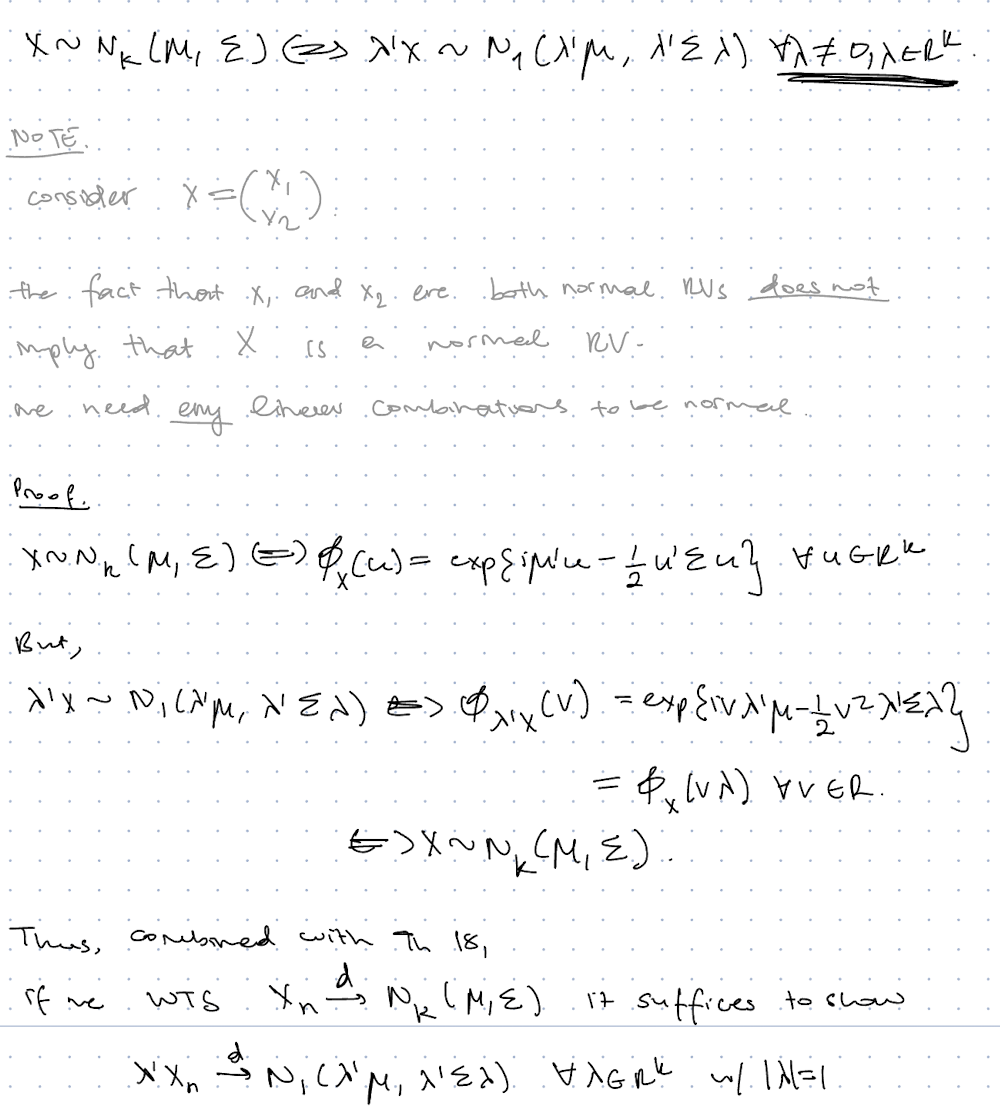 X ~ N_k (μ, Σ) ⟺ λ'X ~ N_1 (λ'μ, λ'Σλ) ∀λ ≠ 0, λ ∈ R^k.
NOTE.
consider X = (X_1 X_2)
the fact that X_1 and X_2 are both normal RVs does not
imply that X is a normal RV.
we need any linear combinations to be normal.
Proof.
X ~ N_k (μ, Σ) ⟺ φ_X(u) = exp{iμ'u - 1/2 u'Σu} ∀u ∈ R^k
But,
λ'X ~ N_1 (λ'μ, λ'Σλ) ⟺ φ_{λ'X}(v) = exp{ivλ'μ - 1/2 v^2 λ'Σλ}
= φ_X(vλ) ∀v ∈ R.
⟺ X ~ N_k (μ, Σ).
Thus, combined with Th 18,
if we WTS X_n →^d N_k (μ, Σ) it suffices to show
λ'X_n →^d N_1 (λ'μ, λ'Σλ) ∀λ ∈ R^k w/ |λ|=1